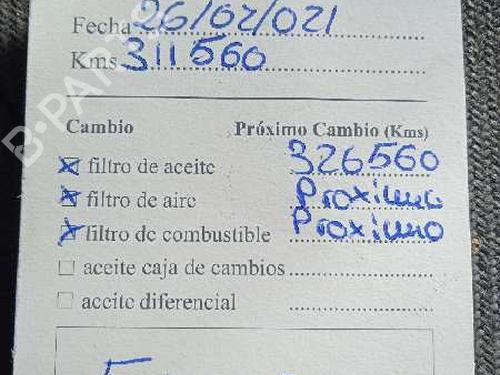 Fecha 26/02/021
Kms 311560
Cambio Próximo Cambio (Kms)
filtro de aceite 326560
filtro de aire Proximo
filtro de combustible Proximo
aceite caja de cambios
aceite diferencial
B-PARTS